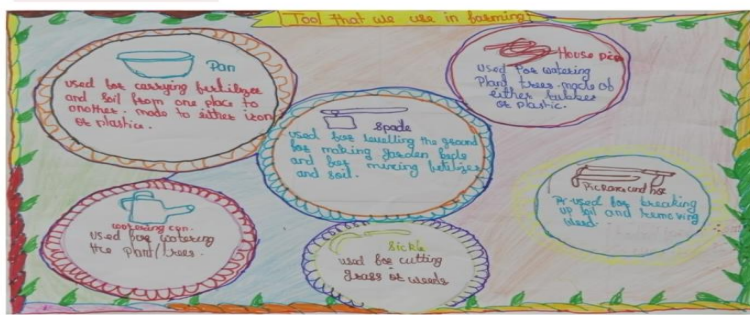 Tool that we use in farming
Pan
used for carrying fertilizer
and soil from one place to
another. made to either iron
or plastics.
House pipe
used for watering
Plant trees. made of
either rubber
or plastic.
Spade
used for levelling the ground
for making garden beds
and for mixing fertilizer
and soil.
watering can.
used for watering
the plant/trees.
Sickle
used for cutting
grass or weeds
Pickaxe and hoe
used for breaking
up soil and removing
weed.